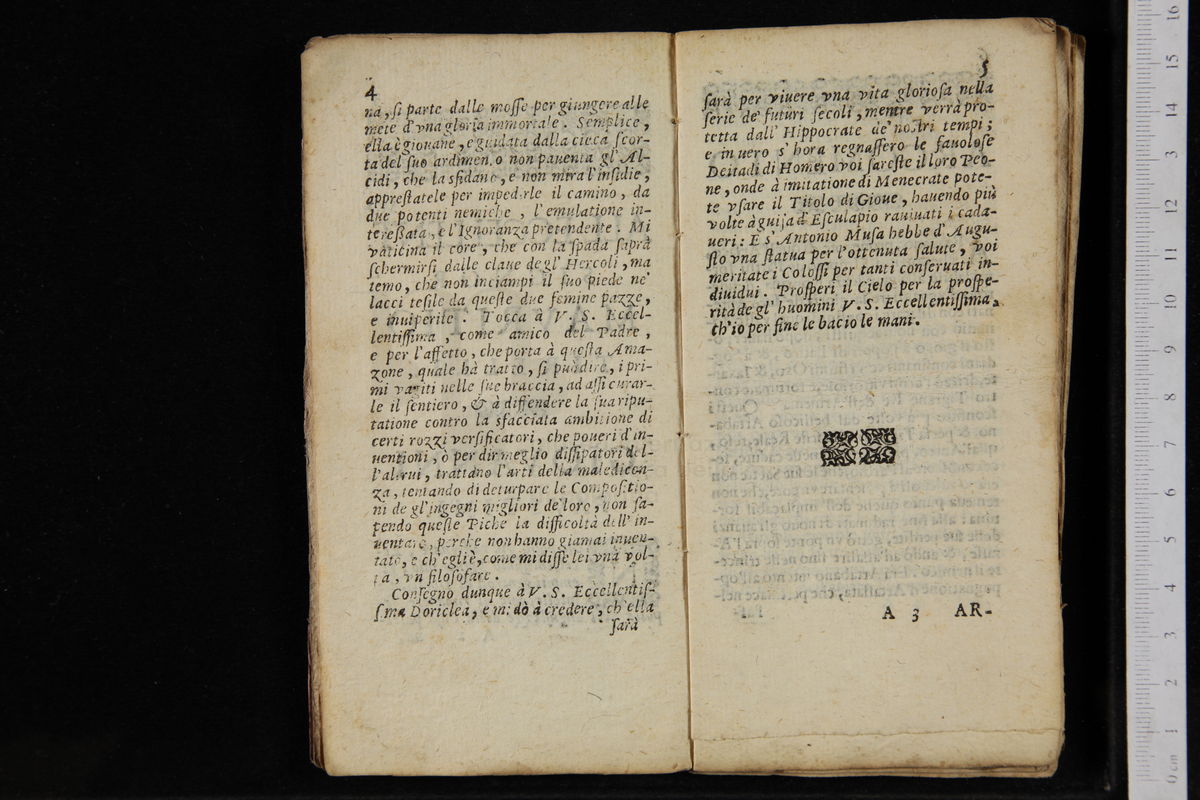 4
na, ſi parte dalle moſſe per giungere alle
mete d'vna gloria immortale. Semplice,
ella è giouane, e guidata dalla cieca ſcor-
ta del ſuo ardimento non pauenta gl'Al-
cidi, che la sfidano, e non mira l'inſidie,
appreſtatele per impedirle il camino, da
due potenti nemiche, l'emulatione in-
tereßata, e l'Ignoranza pretendente. Mi
vaticina il core, che con la ſpada ſaprà
ſchermirſi dalle claue degl'Hercoli, ma
temo, che non inciampi il ſuo piede ne'
lacci teſile da queſte due femine pazze,
e inuiperite. Tocca à V. S. Eccel-
lentiſſima, come amico del Padre,
e per l'affetto, che porta à queſta Ama-
zone, quale hà tratto, ſi può dire, i pri-
mi vagiti nelle ſue braccia, ad aſſicurar-
le il ſentiero, & à diffendere la ſua ripu-
tatione contro la sfacciata ambitione di
certi rozzi verſificatori, che poueri d'in-
uentioni, ò per dir meglio diſſipatori del-
l'altrui, trattano l'arti della maledicen-
za, tentando di deturpare le Compoſitio-
ni de gl'ingegni migliori de'loro, non ſa-
pendo queſte Piche la difficoltà dell'in-
uentare, perche non hanno giamai inuen-
tato, e ch'egli è, come mi diſſe lei vna vol-
ta, vn filoſofare.
Conſegno dunque à V. S. Eccellentiſ-
ſima Doriclea, e mi dò à credere, ch'ella
ſarà
5
ſarà per viuere vna vita glorioſa nella
ſerie de' futuri ſecoli, mentre verrà pro-
tetta dall'Hippocrate de' noſtri tempi;
e in uero s'hora regnaſſero le fauoloſe
Deitadi di Homero voi ſareſte il loro Peo-
ne, onde à imitatione di Menecrate pote-
te vſare il Titolo di Gioue, hauendo più
volte à guiſa d'Eſculapio rauiuati i cada-
ueri: E s'Antonio Muſa hebbe d'Augu-
ſto vna ſtatua per l'ottenuta ſalute, voi
meritate i Coloſſi per tanti conſeruati in-
diuidui. Proſperi il Cielo per la proſpe-
rità de gl'huomini V. S. Eccellentiſſima,
ch'io per fine le bacio le mani.
A 3 AR-
0 cm 1 2 3 4 5 6 7 8 9 10 11 12 13 14 15 16